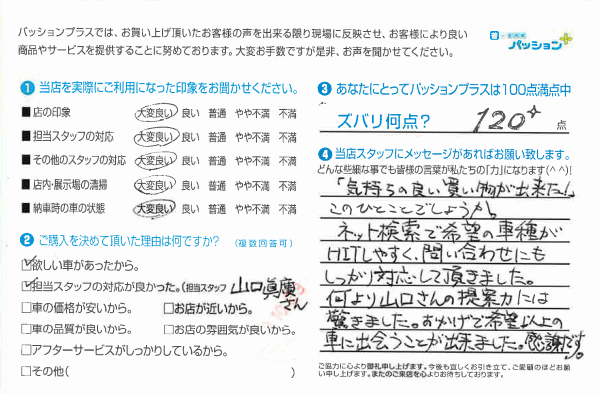 パッションプラスでは、お買い上げ頂いたお客様の声を出来る限り現場に反映させ、お客様により良い
商品やサービスを提供することに努めております。大変お手数ですが是非、お声を聞かせてください。
パッション+
1 当店を実際にご利用になった印象をお聞かせください。
■店の印象 大変良い 良い 普通 やや不満 不満
■担当スタッフの対応 大変良い 良い 普通 やや不満 不満
■その他のスタッフの対応 大変良い 良い 普通 やや不満 不満
■店内・展示場の清掃 大変良い 良い 普通 やや不満 不満
■納車時の車の状態 大変良い 良い 普通 やや不満 不満
2 ご購入を決めて頂いた理由は何ですか? (複数回答可)
☑欲しい車があったから。
☑担当スタッフの対応が良かった。(担当スタッフ 山口眞廣さん
□車の価格が安いから。 □お店が近いから。
□車の品質が良いから。 □お店の雰囲気が良いから。
□アフターサービスがしっかりしているから。
□その他( )
3 あなたにとってパッションプラスは100点満点中
ズバリ何点? 120 点
4 当店スタッフにメッセージがあればお願い致します。
どんな些細な事でも皆様の言葉が私たちの「力」になります(^ ^)!
「気持ちの良い買い物が出来た!」
このひとことでしょうか。
ネット検索で希望の車種が
HITしやすく、問い合わせにも
しっかり対応して頂きました。
何より山口さんの提案力には
驚きました。おかげで希望以上の
車に出会うことが出来ました。感謝です。
ご協力に心より御礼申し上げます。今後も宜しくお引き立て、ご愛顧のほどお願
い申し上げます。またのご来店を心よりお待ちしております。